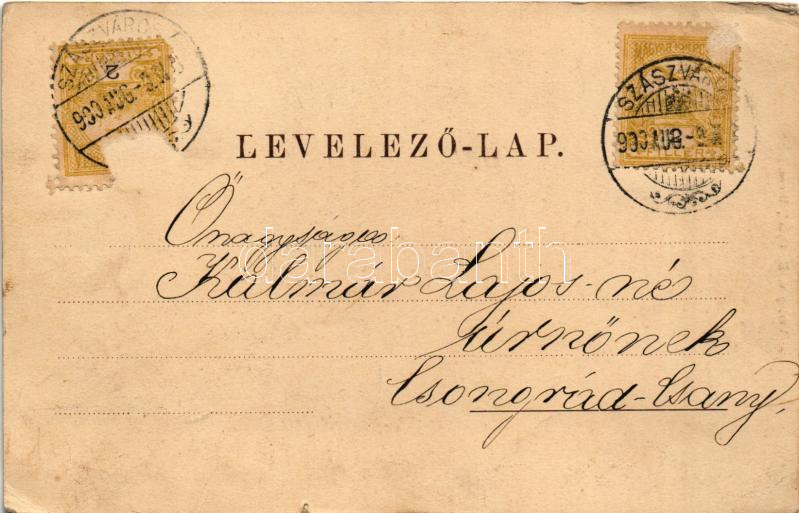 SZÁSZVÁROS
900 AUG.
2
SZÁSZVÁ
900 AUG.
LEVELEZŐ-LAP.
Őnagysága
Kálmár Lajos-né
úrnőnek
Csongrád-Csany,
darabanth